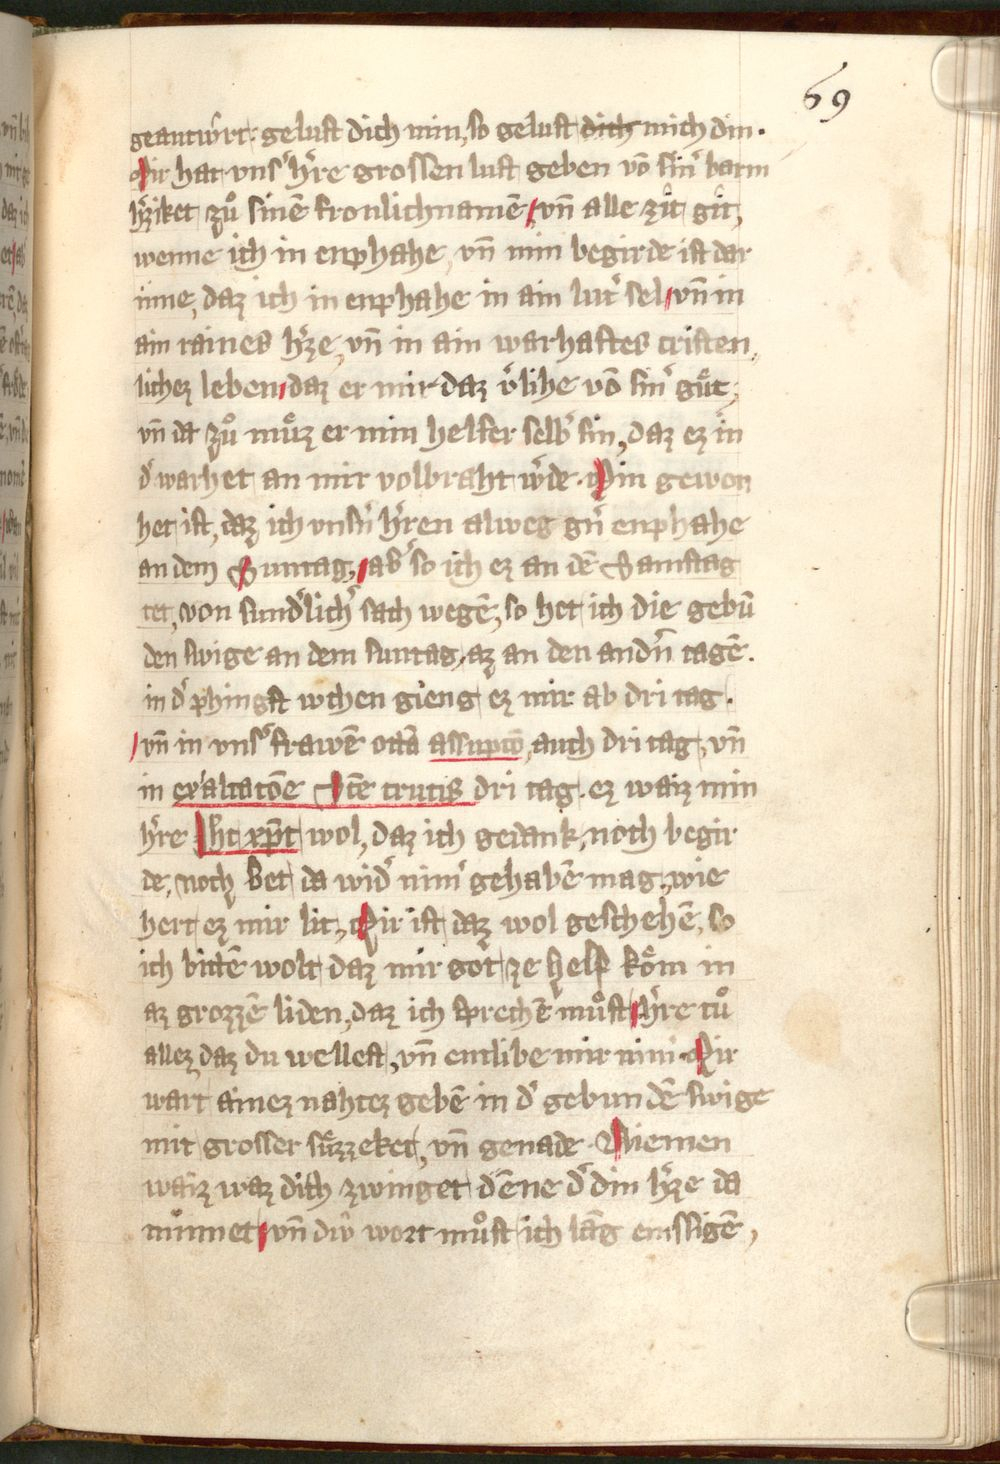 69
geantwᵉrt: gelust dich min, so gelust dich mich din.
Mir hat vnsʼ hʼre grossen lust geben vō sinʼ barm
hʼziket zuͦ sinē fronlichnamē, vn̄ alle zit git,
wenne ich in enphahe, vn̄ min begirde ist dar
inne, daz ich in enphahe in ain lutʼ sel, vn̄ in
ain raines hʼze, vn̄ in ain warhaftes cristen
lichez leben, daz er mir daz vʼlihe vō sinʼ guͤt,
vn̄ da zuͦ muͦz er min helfer selbʼ sin, daz ez in
dʼ warhet an mir volbraht wʼde. Min gewon
het ist, daz ich vnsʼn hʼren alweg gʼn enphahe
an dem Suntag, abʼ so ich ez an dē Samstag
tet, von sundʼlichʼ sach wegē, so het ich die gebū
den swige an dem suntag, az an den andʼn tagē.
in dʼ phingst wchen gieng ez mir ab dri tag.
vn̄ in vnsʼ frawē octā assūpcō, auch dri tag, vn̄
in exaltacōe Scē crucis dri tag. ez waiz min
hʼre Ihc xp̄c wol, daz ich gedank, noch begir
de, noch bet da widʼ nimʼ gehabē mag, wie
hert ez mir lit, Mir ist daz wol geschehē, so
ich bittē wolt daz mir got ze helf koͤm in
az grozzē liden, daz ich sprechē muͦst hʼre tuͦ
allez, daz du wellest, vn̄ entlibe mir nint. Mir
wart ainez nahtez gebē in dʼ gebundē swige
mit grosser suͤzzeket, vn̄ genade. Niemen
waiz waz dich zwinget dēne dʼ din hʼze da
nuͤnnet, vn̄ diu wort muͦst ich lāg emssigē,